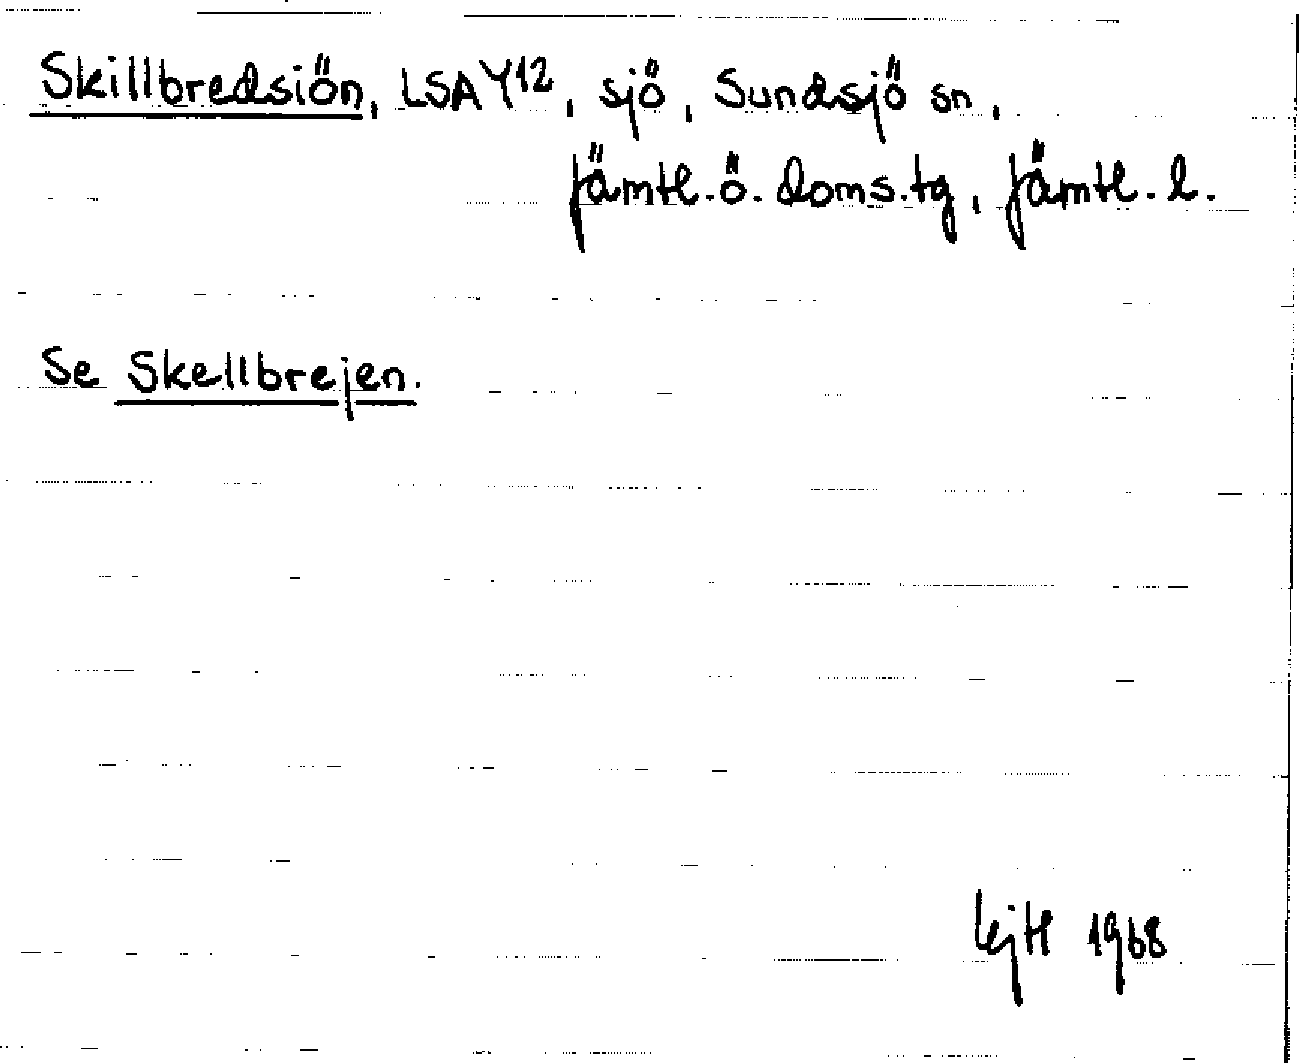 Skillbredsiön, LSA Y12, sjö, Sundsjö sn,
Jämtl. ö. doms.tg, Jämtl. l.
Se Skellbrejen.
1968